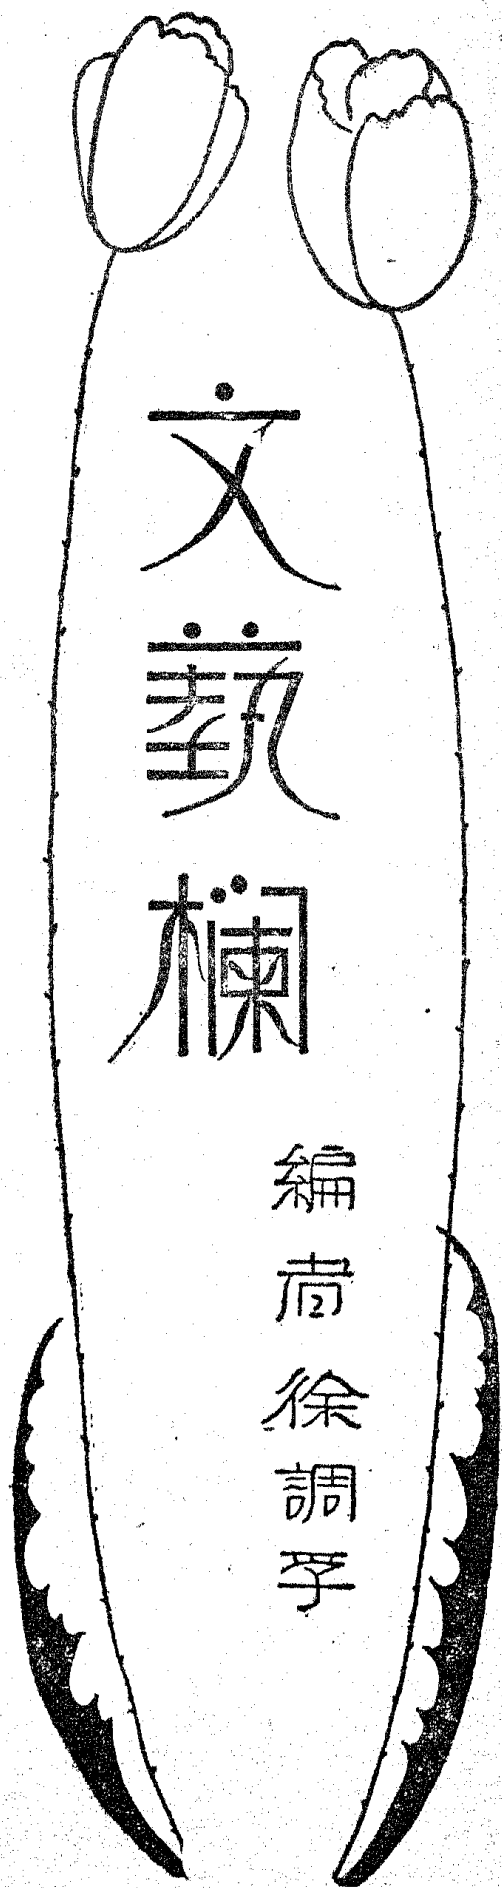 文藝欄
編者徐調孚